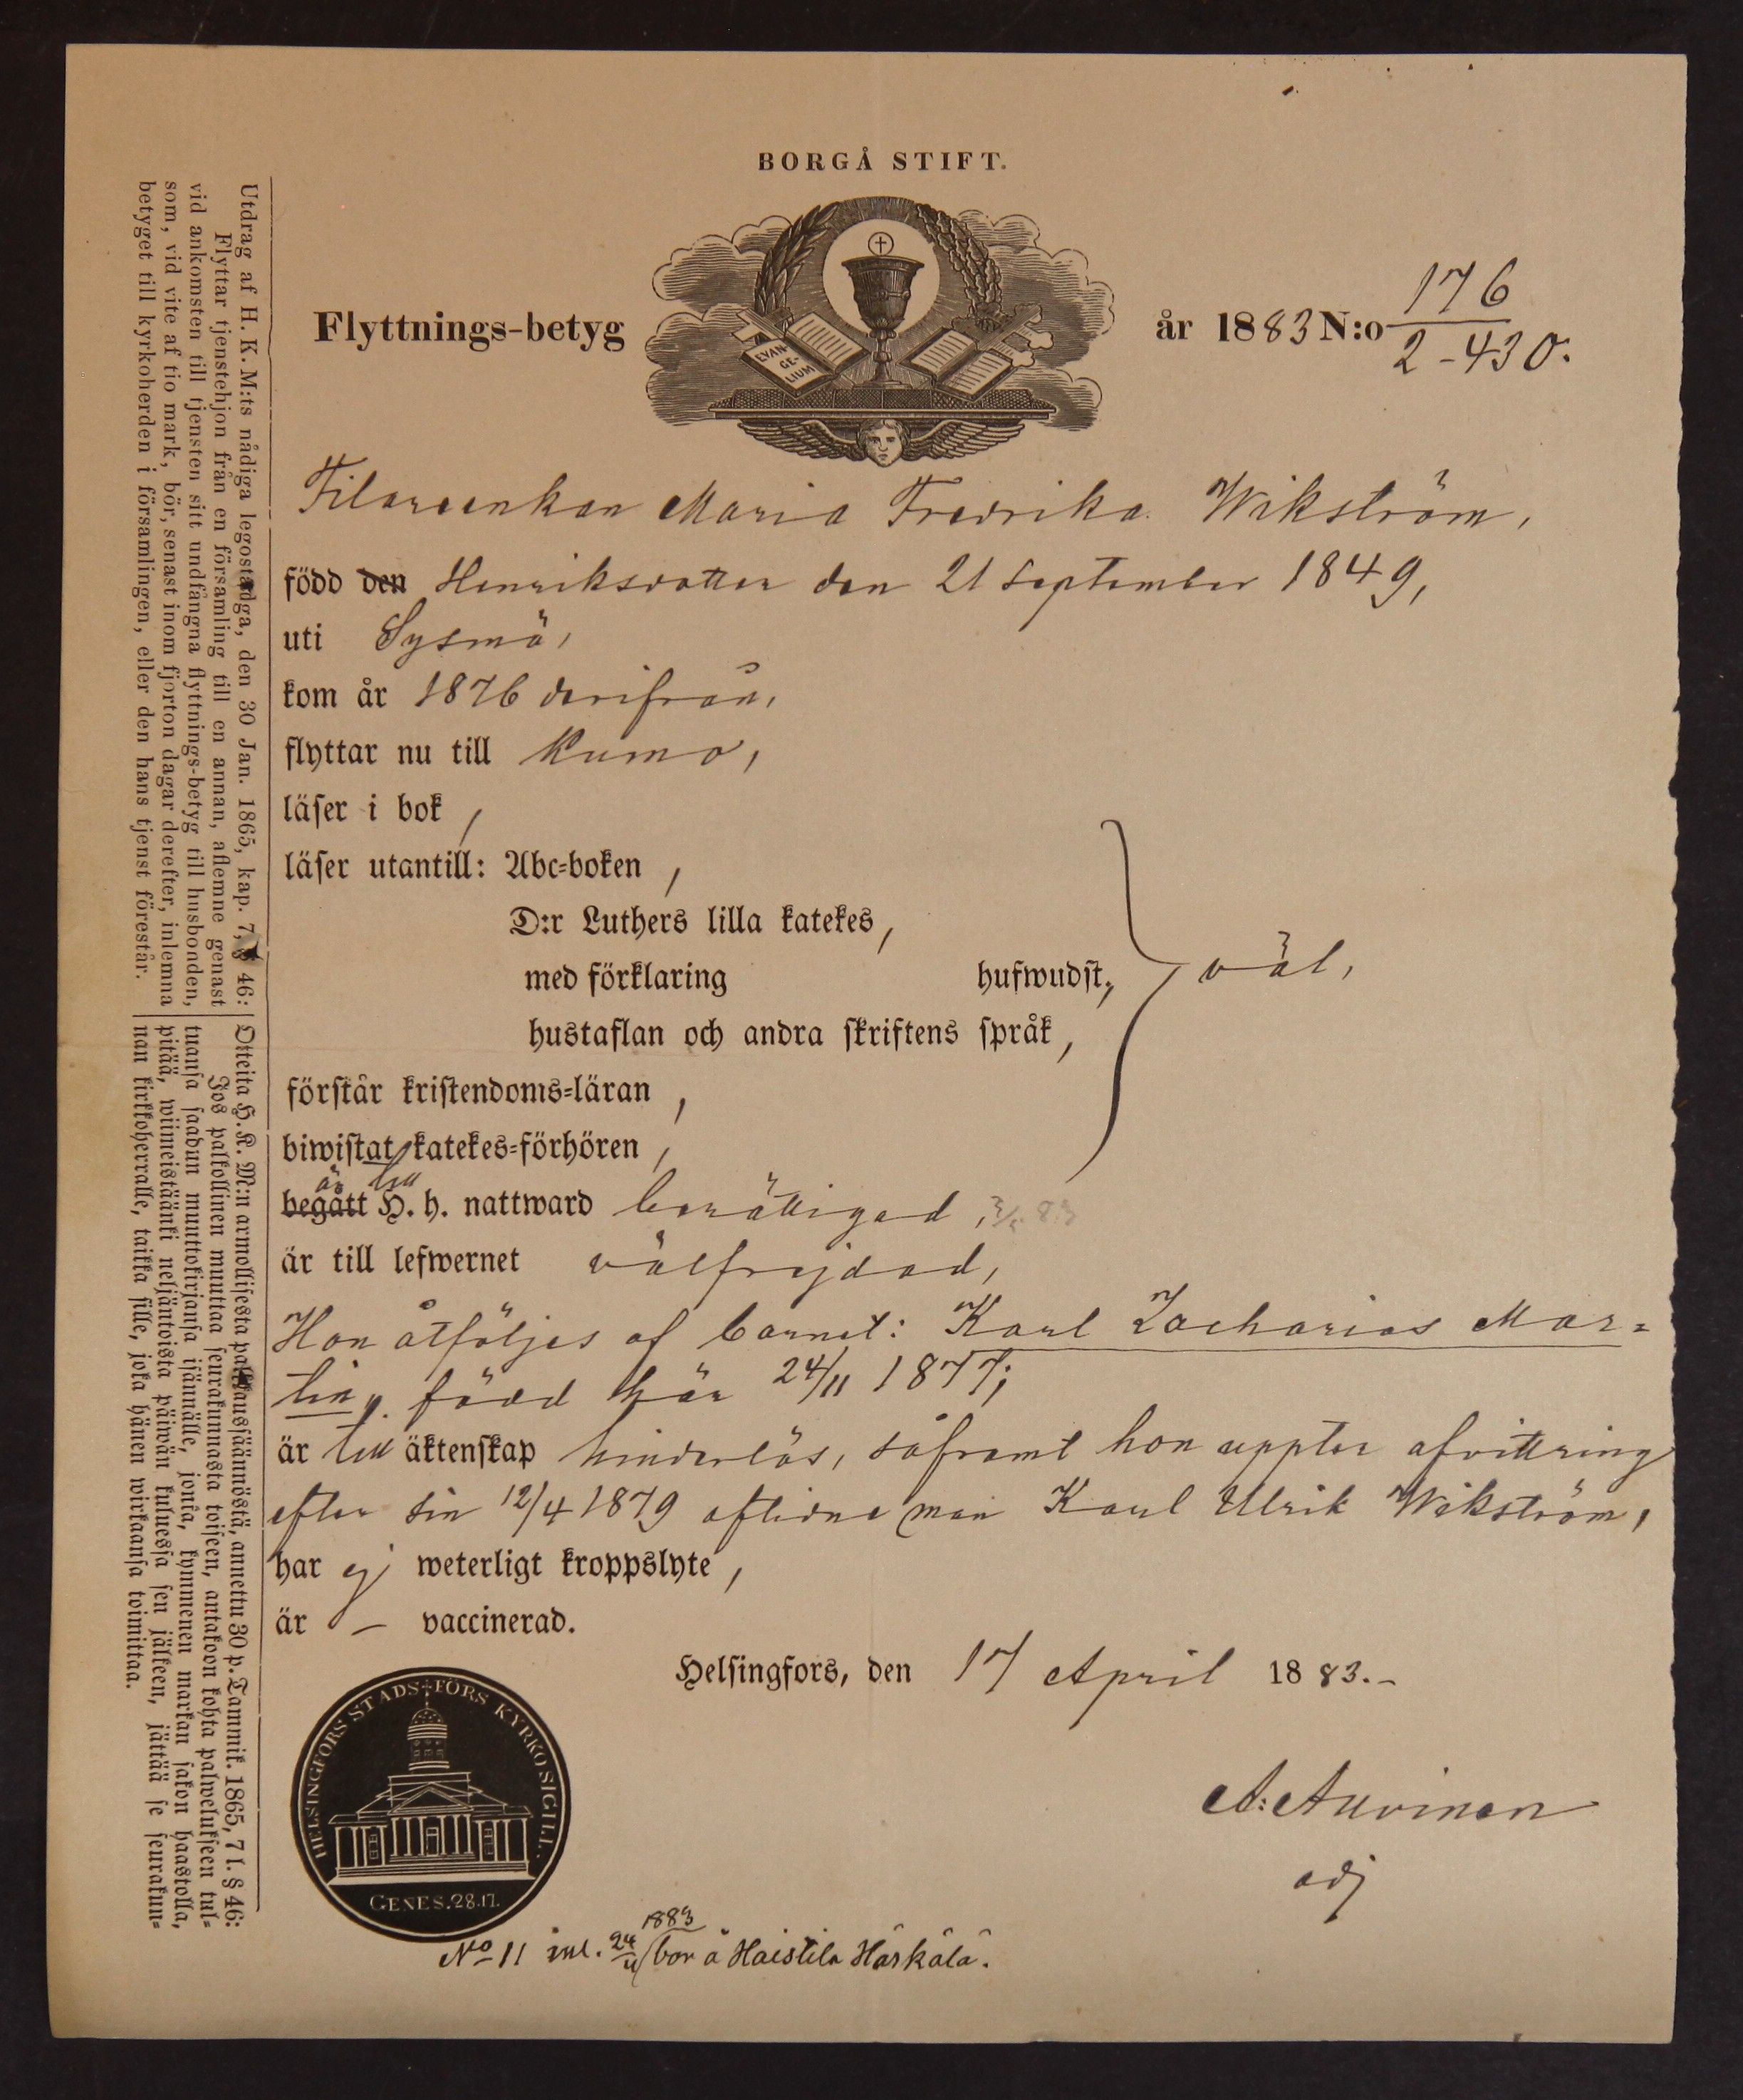 BORGÅ STIFT.
Flyttnings-betyg
EVAN-
GE-
LIUM
år 1883 N:o 176
2-430.
Filareenkan Maria Fredrika Wikström,
född den Henriksdotter den 21 September 1849,
uti Sysmä,
kom år 1876 derifrån,
flyttar nu till Kumo,
läser i bok,
läser utantill: Abc-boken,
D:r Luthers lilla katekes,
med förklaring hufwudst.,
väl,
hustaflan och andra skriftens språk,
förstår kristendoms-läran,
biwistat katekes-förhören,
är till
begått H. h. nattward berättigad,
är till lefwernet välfrejdad,
Hon åtföljes af barnet: Karl Zacharias Mar-
tin, född här 24/11 1877;
är till äktenskap hinderlös, såframt hon uppter afvittring
efter sin 12/4 1879 aflidne man Karl Ulrik Wikström,
har ej weterligt kroppslyte,
är — vaccinerad.
Helsingfors, den 17 April 1883.-
A. Auvinen
adj
HELSINGFORS STADS FÖRS KYRKO SIGILL.
GENES. 28.17.
1883
No 11 inl. 24/4 bor å Haistila Härkälä.
Utdrag af H. K. M:ts nådiga legostadga, den 30 Jan. 1865, kap. 7, § 46:
Flyttar tjenstehjon från en församling till en annan, aflemne genast
vid ankomsten till tjensten sitt undfångna flyttnings-betyg till husbonden,
som, vid vite af tio mark, bör, senast inom fjorton dagar derefter, inlemna
betyget till kyrkoherden i församlingen, eller den hans tjenst förestår.
Otteita H. K. M:n armollisesta palkkaussäännöstä, annettu 30 p. Tammik. 1865, 7 l. § 46:
Jos palkollinen muuttaa seurakunnasta toiseen, antakoon kohta palwelukseen tul-
tuansa saadun muuttokirjansa isännälle, jonka, kymmenen markan sakon haastolla,
pitää, wiimeistäänki neljäntoista päiwän kuluessa sen jälkeen, jättää se seurakun-
nan kirkkoherralle, taikka sille, joka hänen wirkaansa toimittaa.